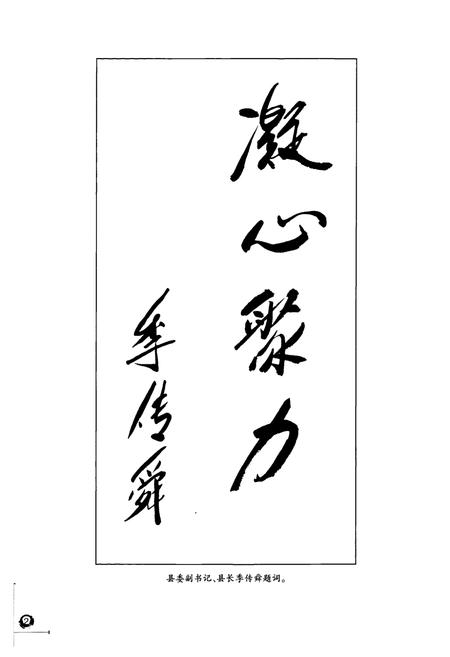 凝心聚力
季传舜
县委副书记、县长季传舜题词。
2